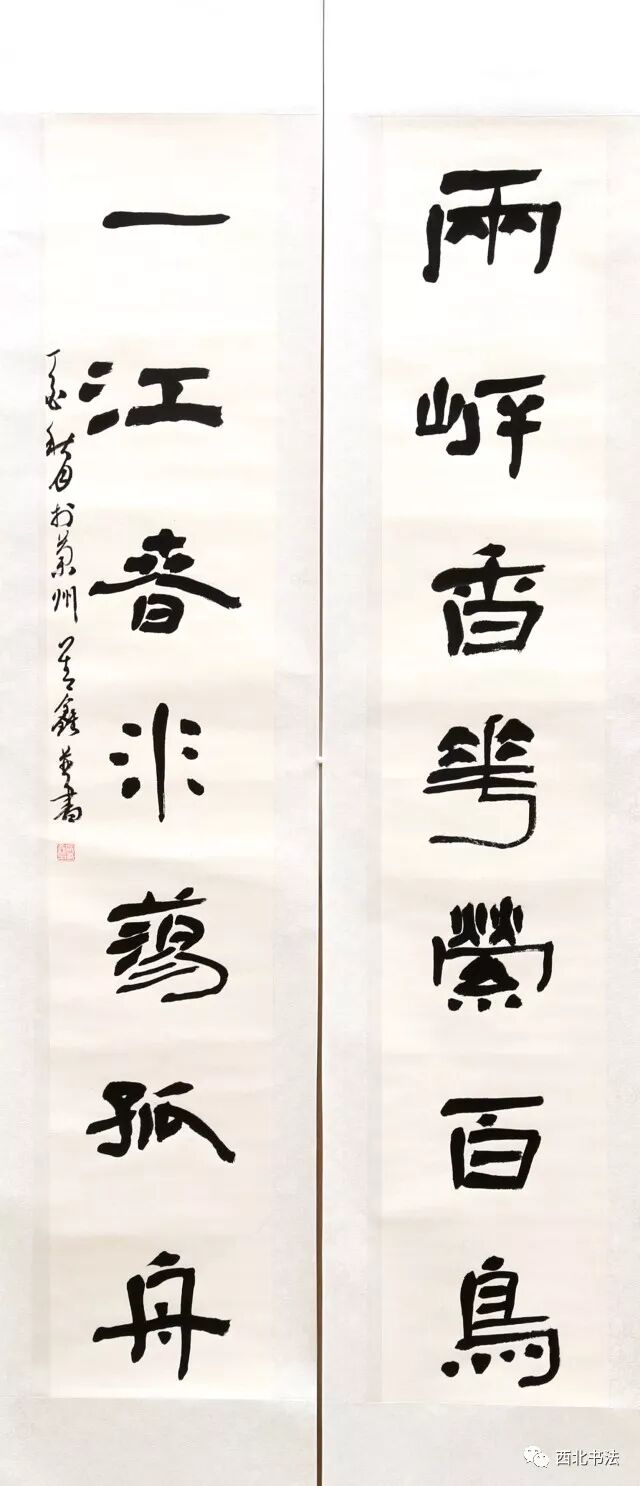 兩岸香華縈百鳥
一江春水蕩孤舟
丁酉秋月於蘭州 書
西北书法